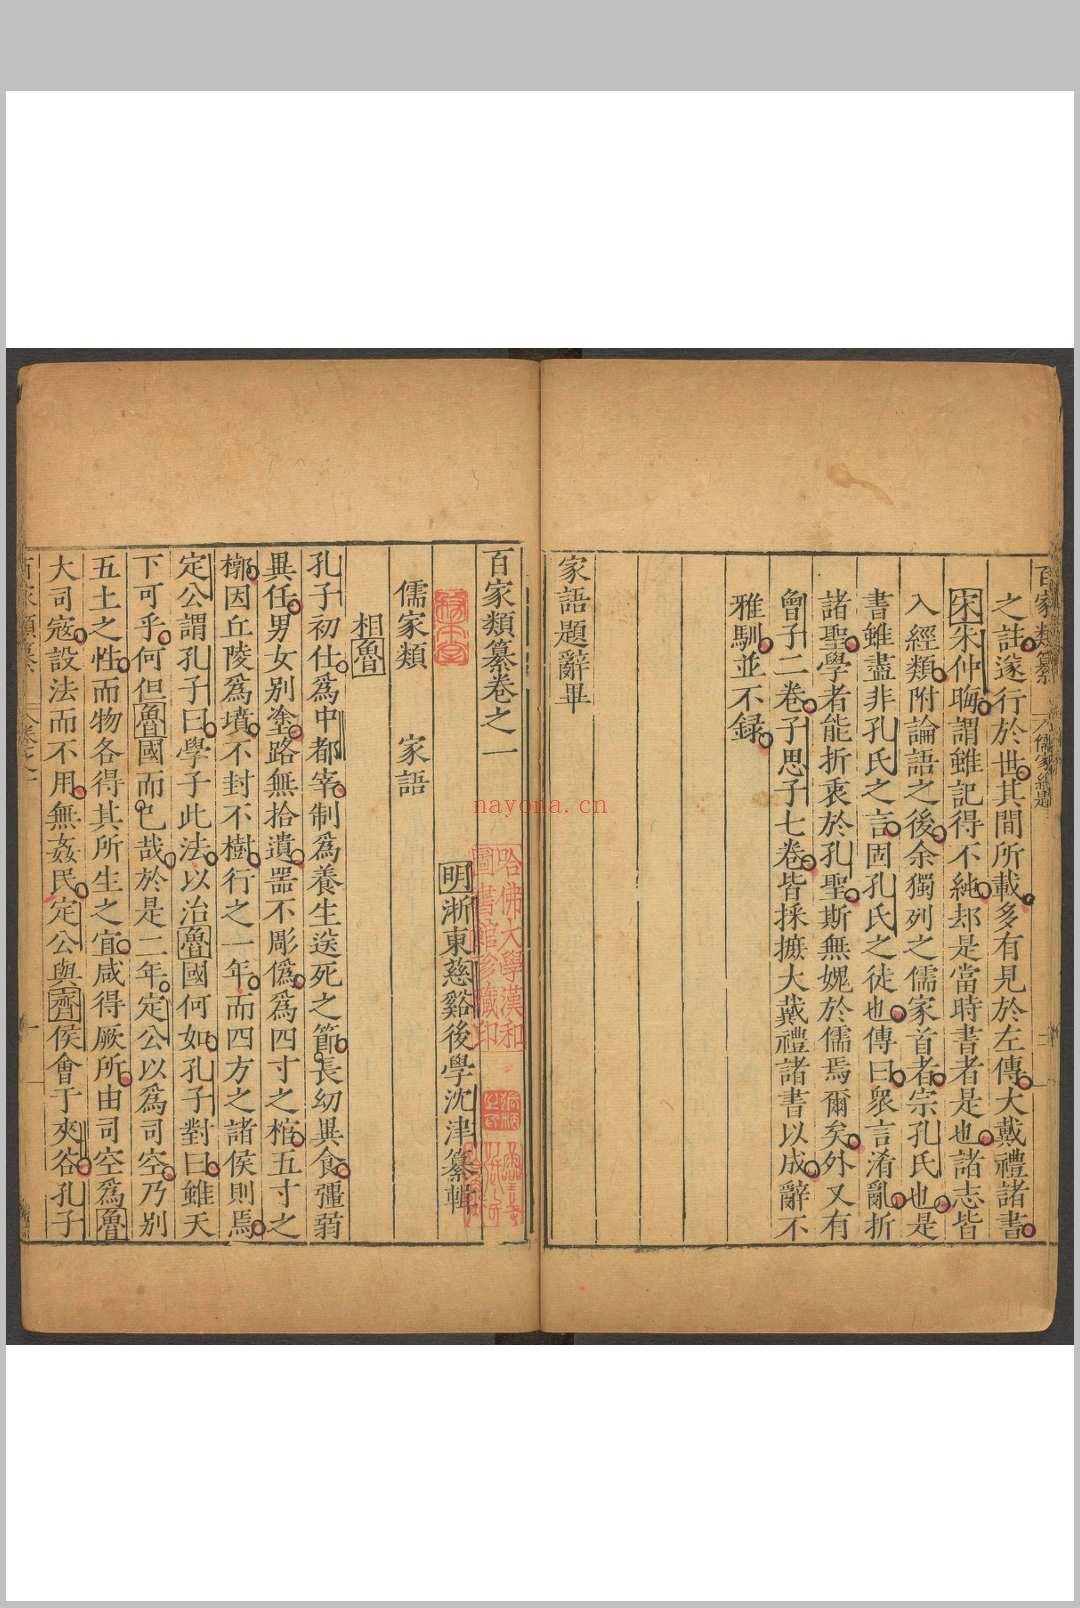 百家類纂
之註遂行於世其間所載多有見於左傳大戴禮諸書
宋朱仲晦謂雖記得不純却是當時書者是也諸志皆
入經類附論語之後余獨列之儒家首者宗孔氏也是
書雖盡非孔氏之言固孔氏之徒也傳曰衆言淆亂折
諸聖學者能折衷於孔聖斯無媿於儒焉爾矣外又有
曾子二卷子思子七卷皆採摭大戴禮諸書以成辭不
雅馴並不録
家語題辭畢
百家類纂卷之一
明浙東慈谿後學沈津纂輯
儒家類 家語
相魯
孔子初仕爲中都宰制爲養生送死之節長幼異食彊弱
異任男女別塗路無拾遺器不彫僞爲四寸之棺五寸之
槨因丘陵爲墳不封不樹行之一年而四方之諸侯則焉
定公謂孔子曰學子此法以治魯國何如孔子對曰雖天
下可乎何但魯國而已哉於是二年定公以爲司空乃別
五土之性而物各得其所生之宜咸得厥所由司空爲魯
大司寇設法而不用無姦民定公與齊侯會于夾谷孔子
哈佛大學漢和
圖書館珍藏印
nayona.cn